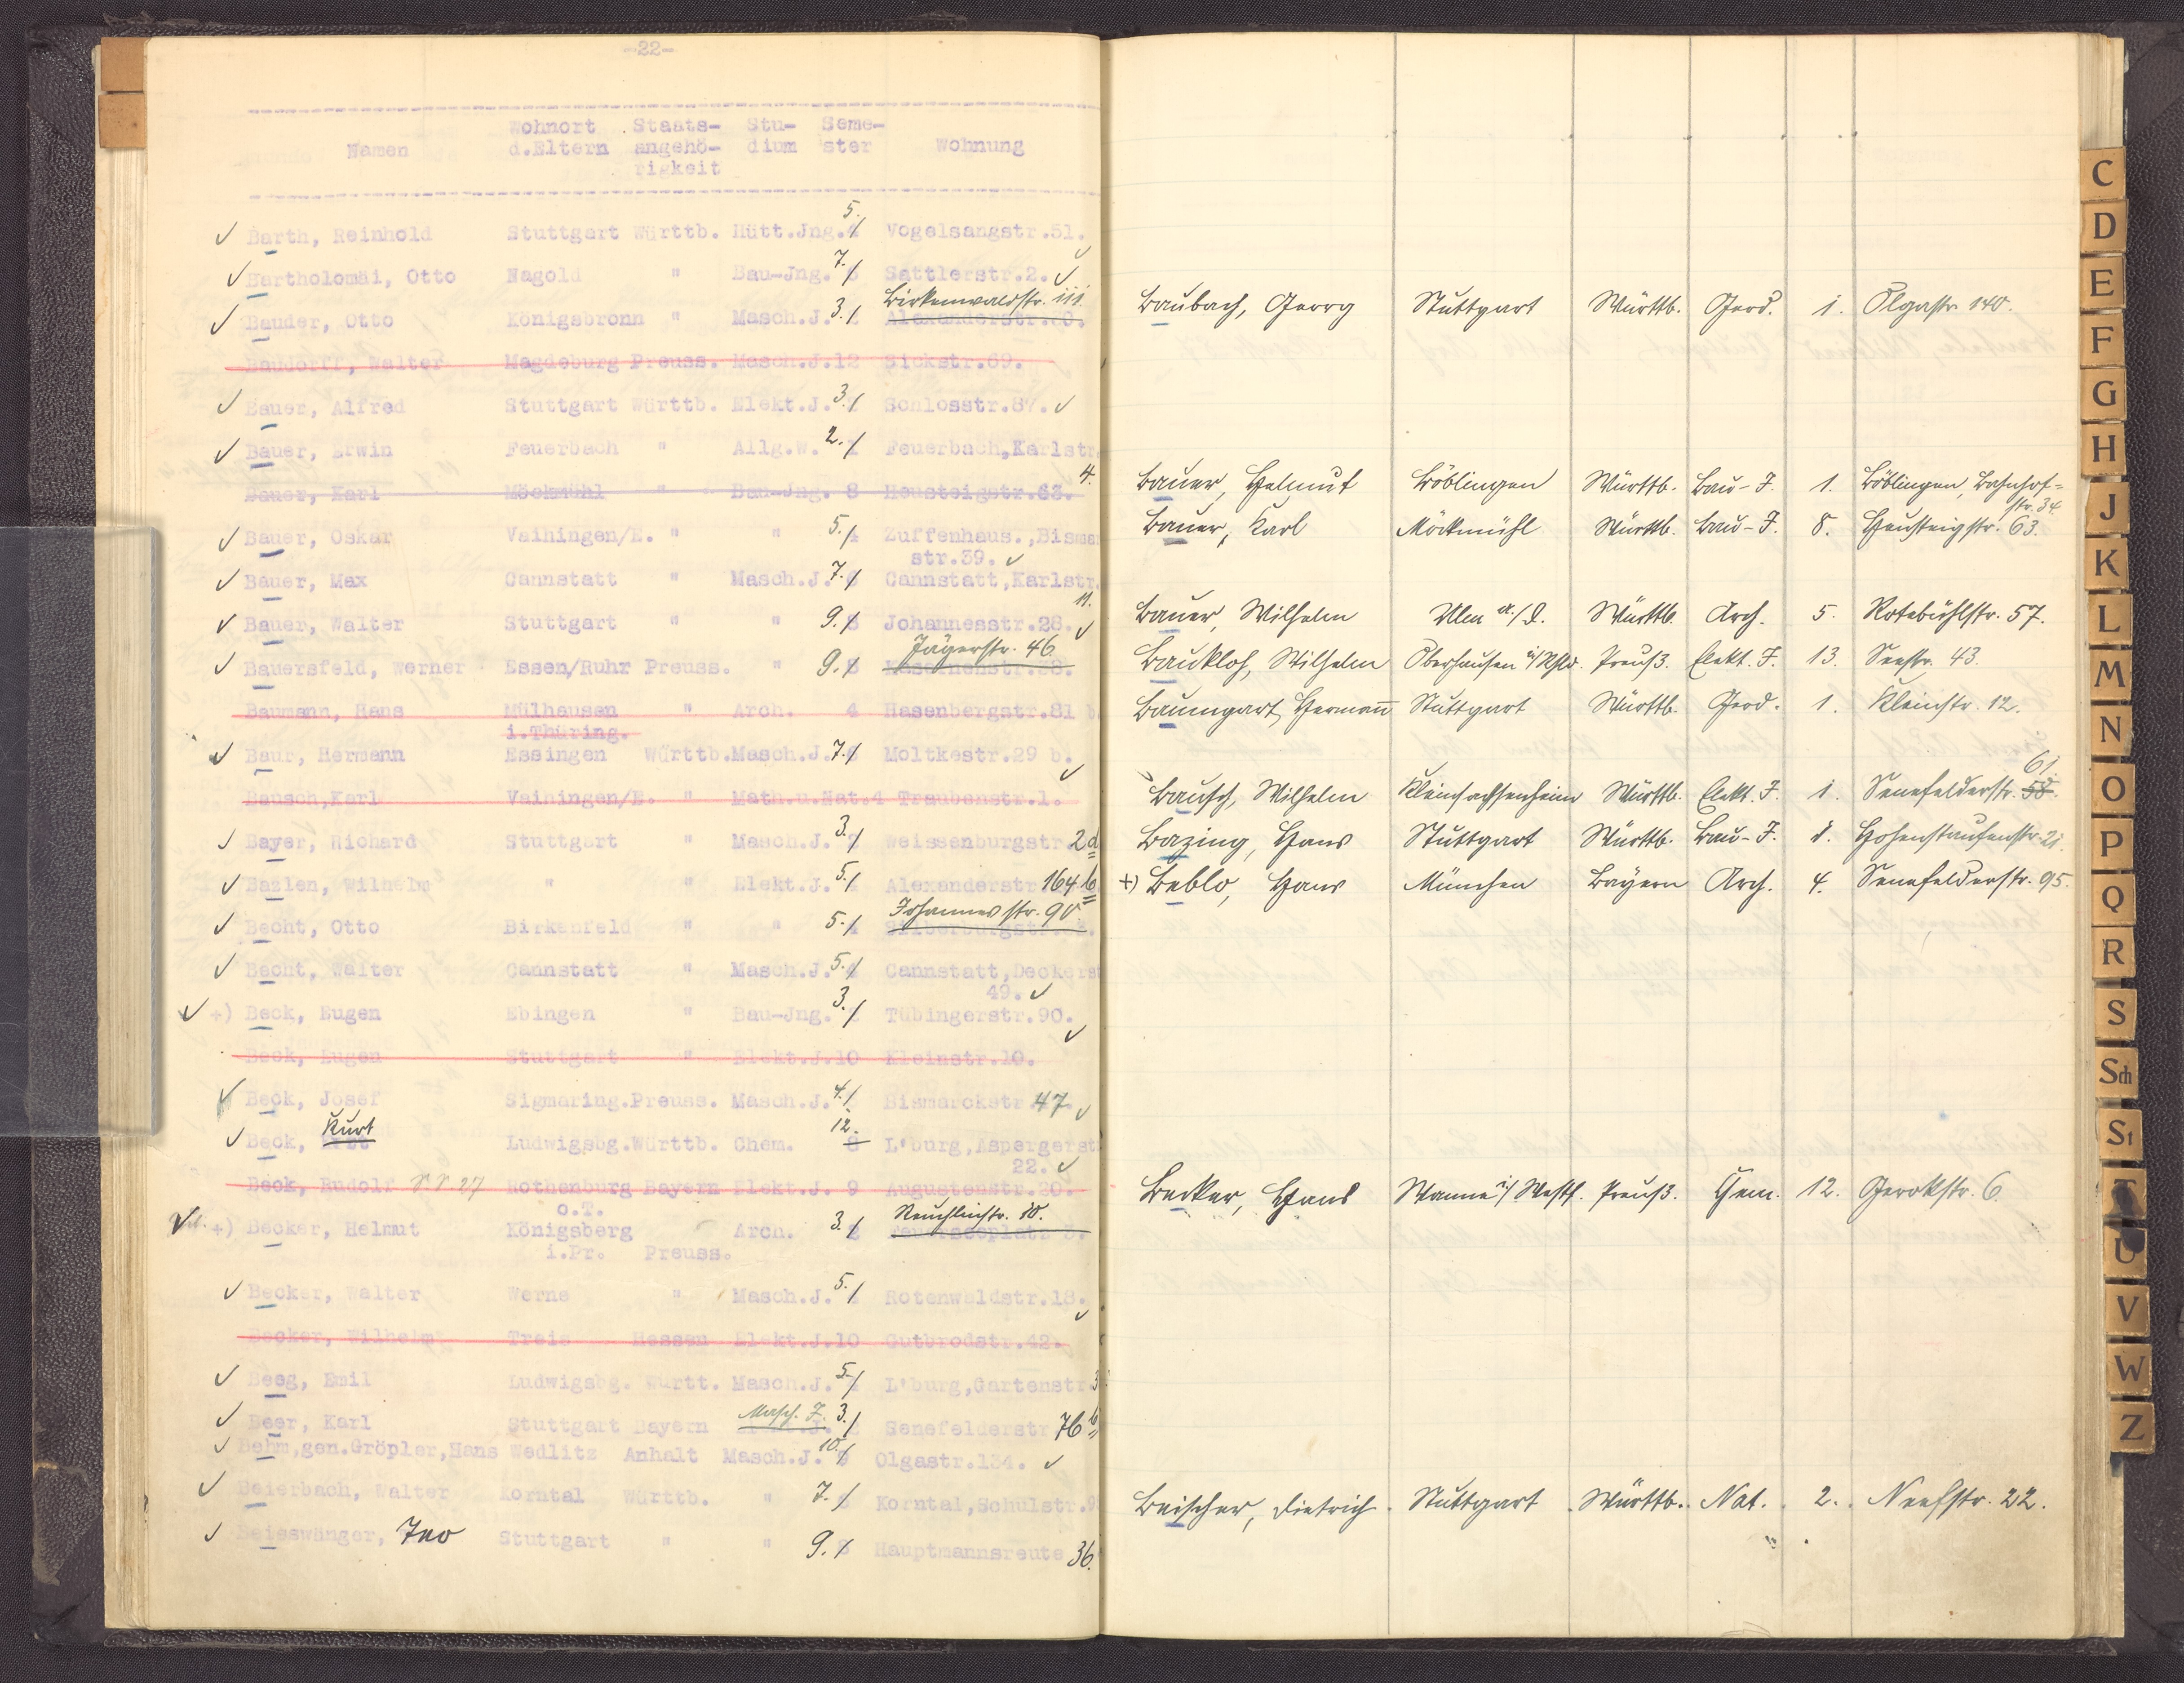 -22-
Namen Wohnort d.Eltern Staats-angehö-rigkeit Stu-dium Seme-ster Wohnung
Barth, Reinhold Stuttgart Württb. Hütt.Jng. 5. Vogelsangstr.51.
Bartholomäi, Otto Nagold " Bau-Jng. 7. Sattlerstr.2.
Birkenwaldstr. 111.
Bauder, Otto Königsbronn " Masch.J. 3. Alexanderstr.
Baudorff, Walter Magdeburg Preuss. Masch.J.12 Sickstr.69.
Bauer, Alfred Stuttgart Württb. Elekt.J. 3. Schlosstr.87.
Bauer, Erwin Feuerbach " Allg.W. 2. Feuerbach,Karlstr.
4.
Bauer, Karl Möckmühl " Bau-Jng. 8 Heusteigstr.63.
Bauer, Oskar Vaihingen/E. " " 5. Zuffenhaus.,Bismar
str.39.
Bauer, Max Cannstatt " Masch.J. 7. Cannstatt,Karlstr.
11.
Bauer, Walter Stuttgart " " 9. Johannesstr.28.
Jägerstr. 46
Bauersfeld, Werner Essen/Ruhr Preuss. " 9.
Baumann, Hans Mülhausen " Arch. 4 Hasenbergstr.81 b
i.Thüring.
Baur, Hermann Essingen Württb.Masch.J. 7. Moltkestr.29 b.
Bausch,Karl Vaihingen/E. " Math.u.Nat.4 Traubenstr.1.
Bayer, Richard Stuttgart " Masch.J. 3. Weissenburgstr 2d
Bazlen, Wilhelm " " Elekt.J. 5. Alexanderstr 164 b
Johannesstr. 90.
Becht, Otto Birkenfeld " " 5.
Becht, Walter Cannstatt " Masch.J. 5. Cannstatt,Deckerst
49.
+) Beck, Eugen Ebingen " Bau-Jng. 3. Tübingerstr.90.
Beck, Eugen Stuttgart " Elekt.J.10 Kleinstr.10.
Beck, Josef Sigmaring.Preuss. Masch.J. 4. Bismarckstr 47.
Kurt 12.
Beck, Ludwigsbg.Württb. Chem. 8 L'burg,Aspergerst
22.
Beck, Rudolf Rothenburg Bayern Elekt.J. 9 Augustenstr.20.
o.T. Reuchlinstr. 10.
+) Becker, Helmut Königsberg Arch. 3.
i.Pr. Preuss.
Becker, Walter Werne " Masch.J. 5. Rotenwaldstr.18.
Becker, Wilhelm Treis Hessen Elekt.J.10 Gutbrodstr.42.
Beeg, Emil Ludwigsbg. Württ. Masch.J. 5. L'burg,Gartenstr 3
Beer, Karl Stuttgart Bayern Masch. J. 3. Senefelderstr 76 b
Behm,gen.Gröpler,Hans Wedlitz Anhalt Masch.J. 10. Olgastr.134.
Beierbach, Walter Korntal Württb. " 7. Korntal,Schulstr.9
Beisswänger, Ivo Stuttgart " " 9. Hauptmannsreute 36.
Baubach, Georg Stuttgart Württb. Geod. 1. Olgastr. 140.
Bauer, Helmut Böblingen Württb. Bau-J. 1. Böblingen, Bahnhof=
str. 34.
Bauer, Karl Möckmühl Württb. Bau-J. 8. Heusteigstr. 63.
Bauer, Wilhelm Ulm a./D. Württb. Arch. 5. Rotebühlstr. 57.
Baukloh, Wilhelm Oberhausen i/Rhld. Preuß. Elekt. J. 13. Seestr. 43.
Baumgart, Hermann Stuttgart Württb. Geod. 1. Kleinstr. 12.
61.
Bausch, Wilhelm Kleinsachsenheim Württb. Elekt. J. 1. Senefelderstr. 58.
Bazing, Hans Stuttgart Württb. Bau-J. 1. Hohenstaufenstr. 21.
+) Beblo, Hans München Bayern Arch. 4. Senefelderstr. 95.
Becker, Hans Wanne i/Westf. Preuß. Chem. 12. Gerokstr. 6.
Beischer, Dietrich Stuttgart Württb. Nat. 2. Neefstr. 22.
C
D
E
F
G
H
J
K
L
M
N
O
P
Q
R
S
Sch
St
T
U
V
W
Z